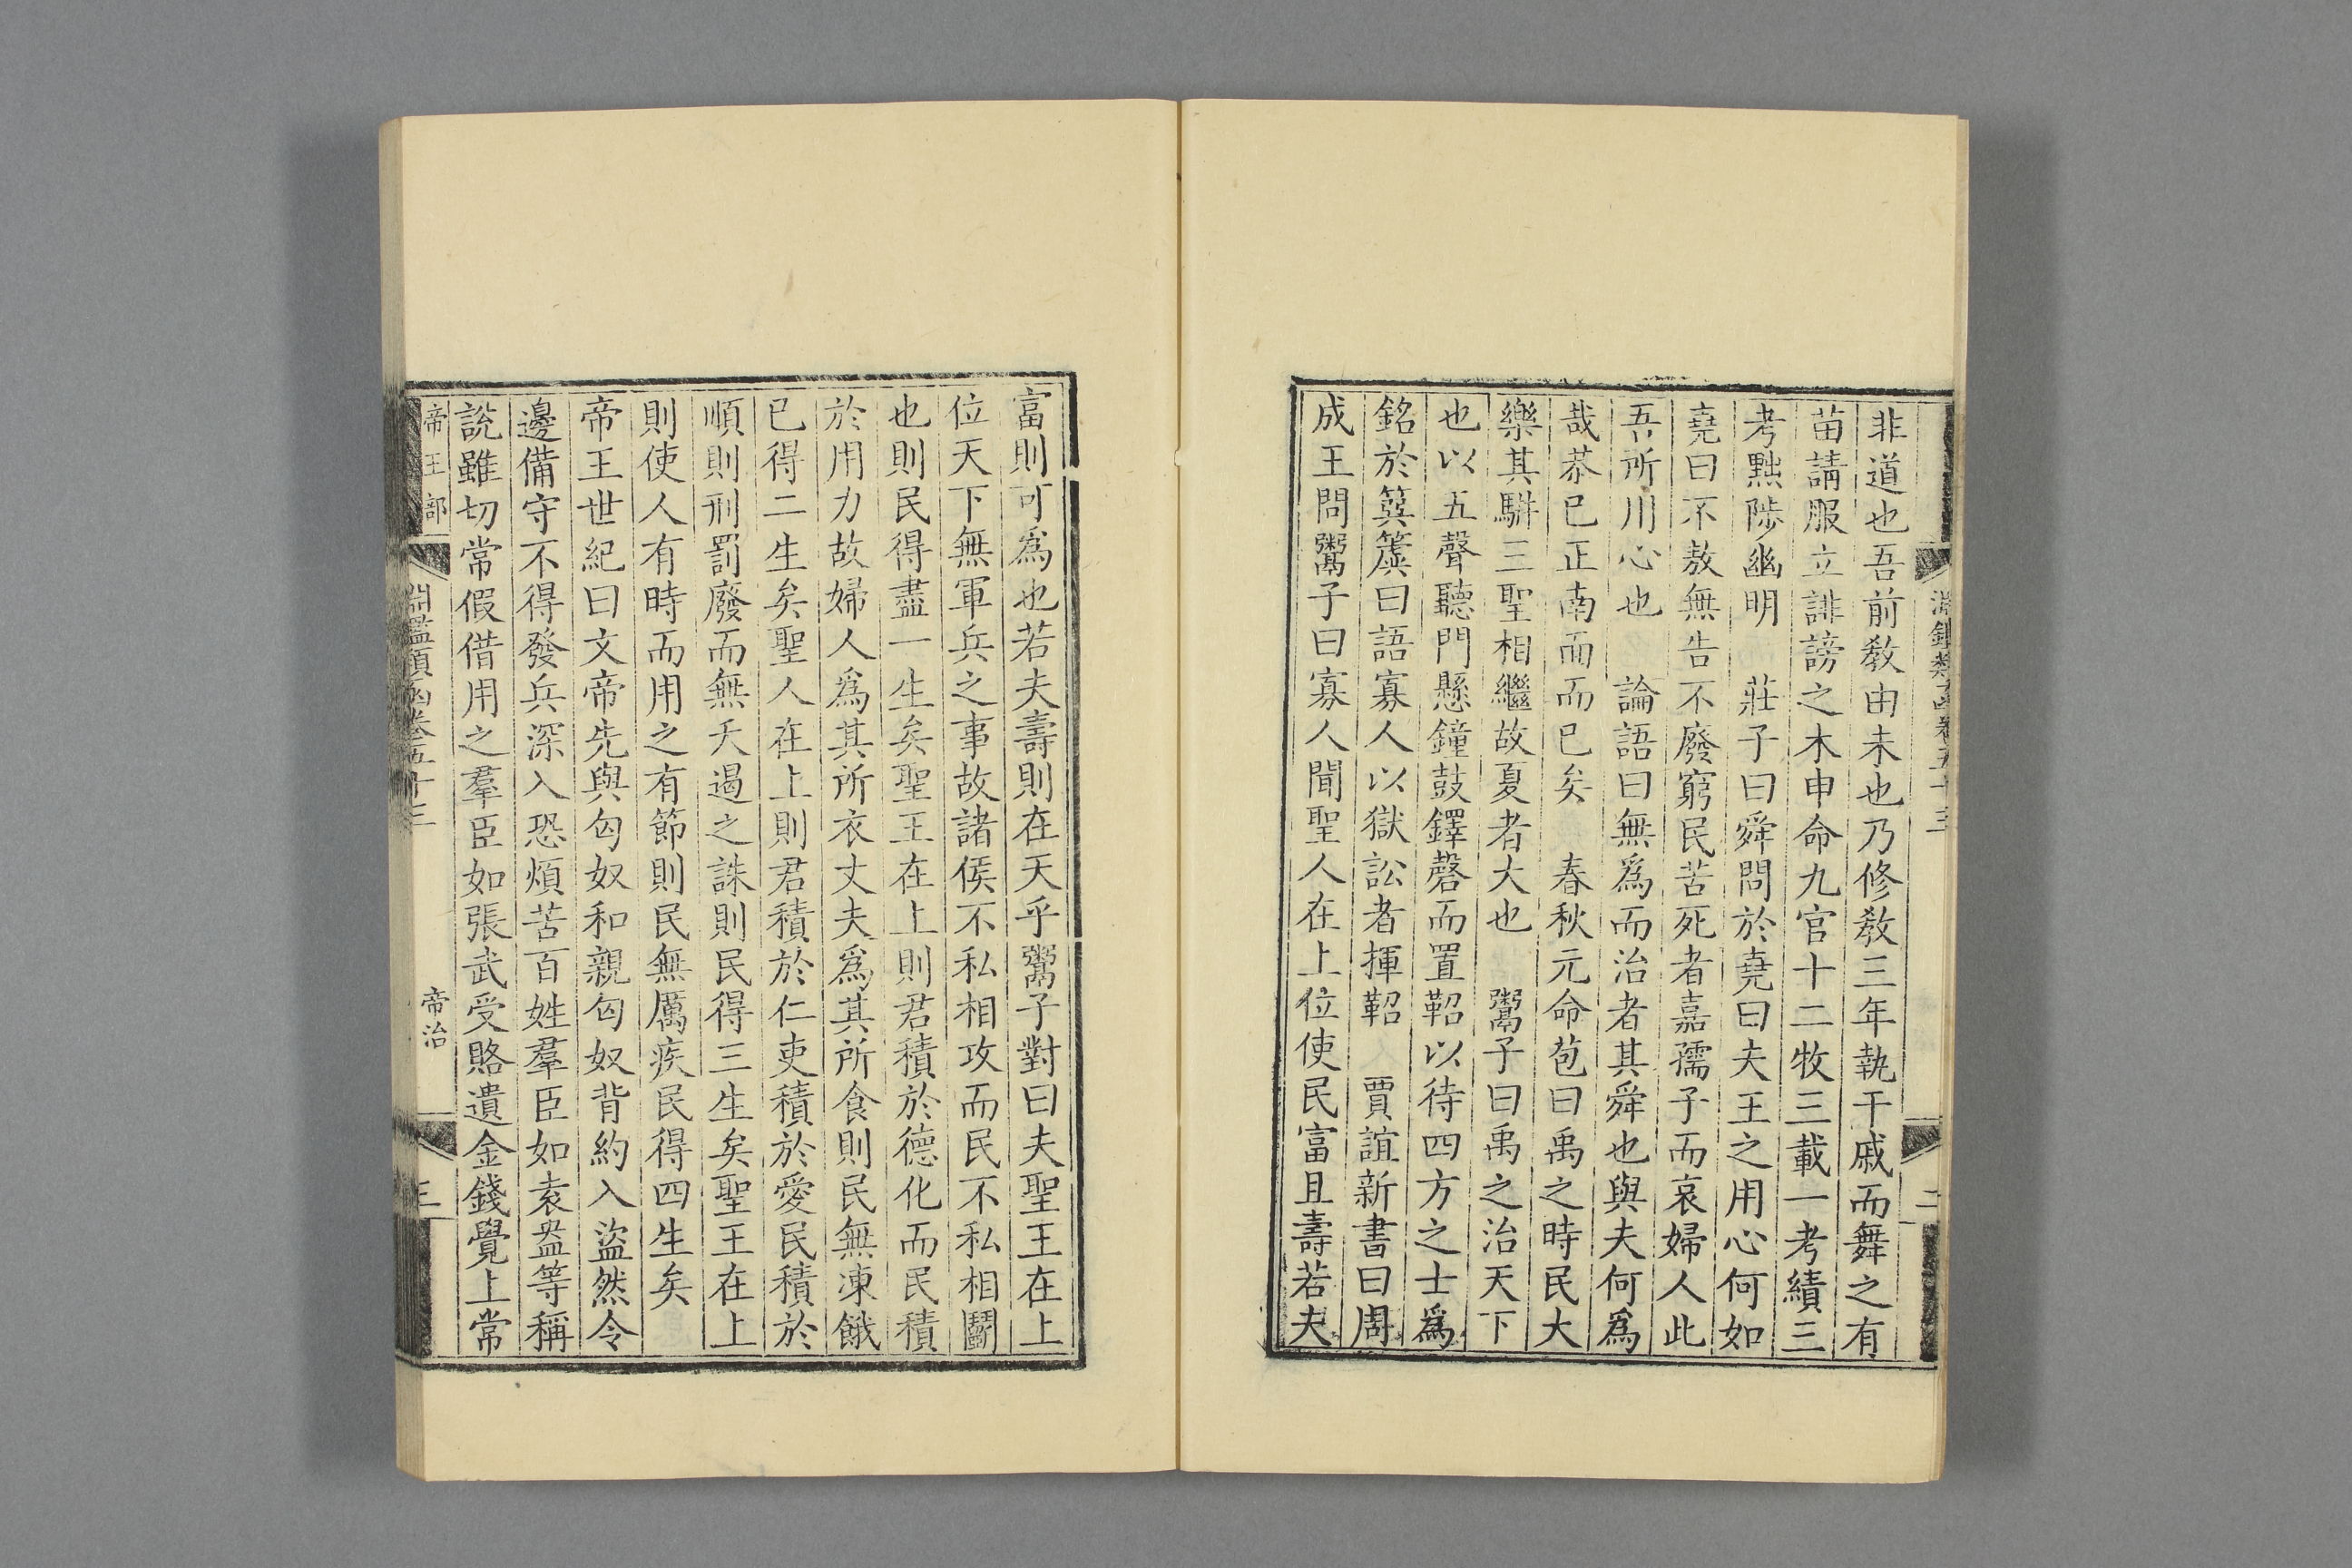 淵鑑類函卷五十三
二
非道也吾前敎由未也乃修敎三年執干戚而舞之有
苗請服立誹謗之木申命九官十二牧三載一考績三
考黜陟幽明　莊子曰舜問於堯曰夫王之用心何如
堯曰不敖無告不廢窮民苦死者嘉孺子而哀婦人此
吾所川心也　論語曰無爲而治者其舜也與夫何爲
哉恭已正南面而已矣　春秋元命苞曰禹之時民大
樂其駢三聖相繼故夏者大也　鬻子曰禹之治天下
也以五聲聽門懸鐘鼓鐸磬而置鞀以待四方之士爲
銘於簨簴曰語寡人以獄訟者揮鞀　賈誼新書曰周
成王問鬻子曰寡人聞聖人在上位使民富且壽若夫
富則可爲也若夫壽則在天乎鬻子對曰夫聖王在上
位天下無軍兵之事故諸侯不私相攻而民不私相鬭
也則民得盡一生矣聖王在上則君積於德化而民積
於用力故婦人爲其所衣丈夫爲其所食則民無凍餓
已得二生矣聖人在上則君積於仁吏積於愛民積於
順則刑罰廢而無夭遏之誅則民得三生矣聖王在上
則使人有時而用之有節則民無厲疾民得四生矣
帝王世紀曰文帝先與匈奴和親匈奴背約入盜然令
邊備守不得發兵深入恐煩苦百姓羣臣如袁盎等稱
說雖切常假借用之羣臣如張武受賂遺金錢覺上常
帝王部
淵鑑類函卷五十三
帝治
三